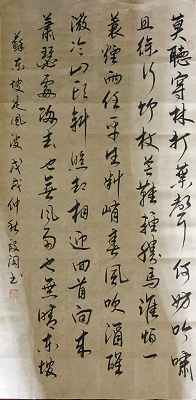 莫聽穿林打葉聲何妨吟嘯
且徐行竹杖芒鞋輕勝馬誰怕一
蓑煙雨任平生料峭春風吹酒醒
微冷山頭斜照却相迎回首向來
蕭瑟處歸去也無風雨也無晴東坡
蘇東坡定風波戊戌仲秋書